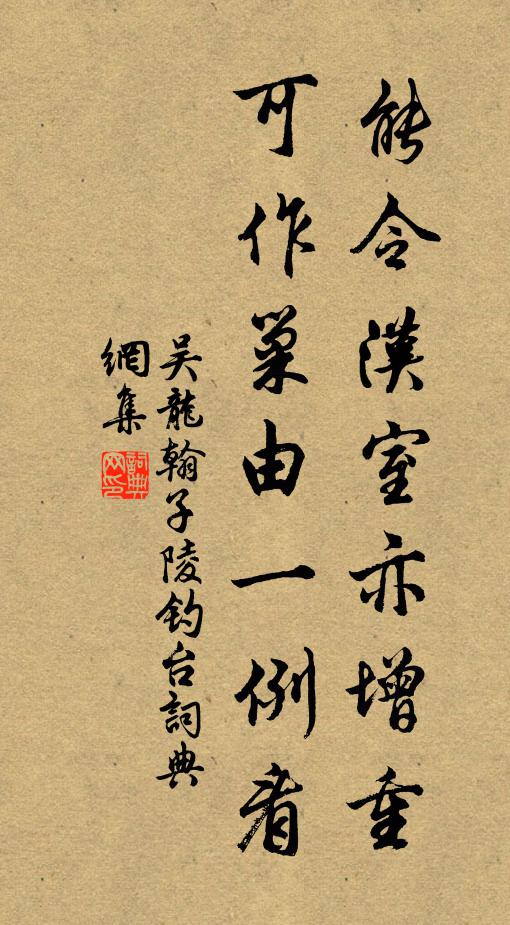 能令漢室亦增重
可作巢由一例看
吴龍翰子陵钓台詞典
網集
詞典网印